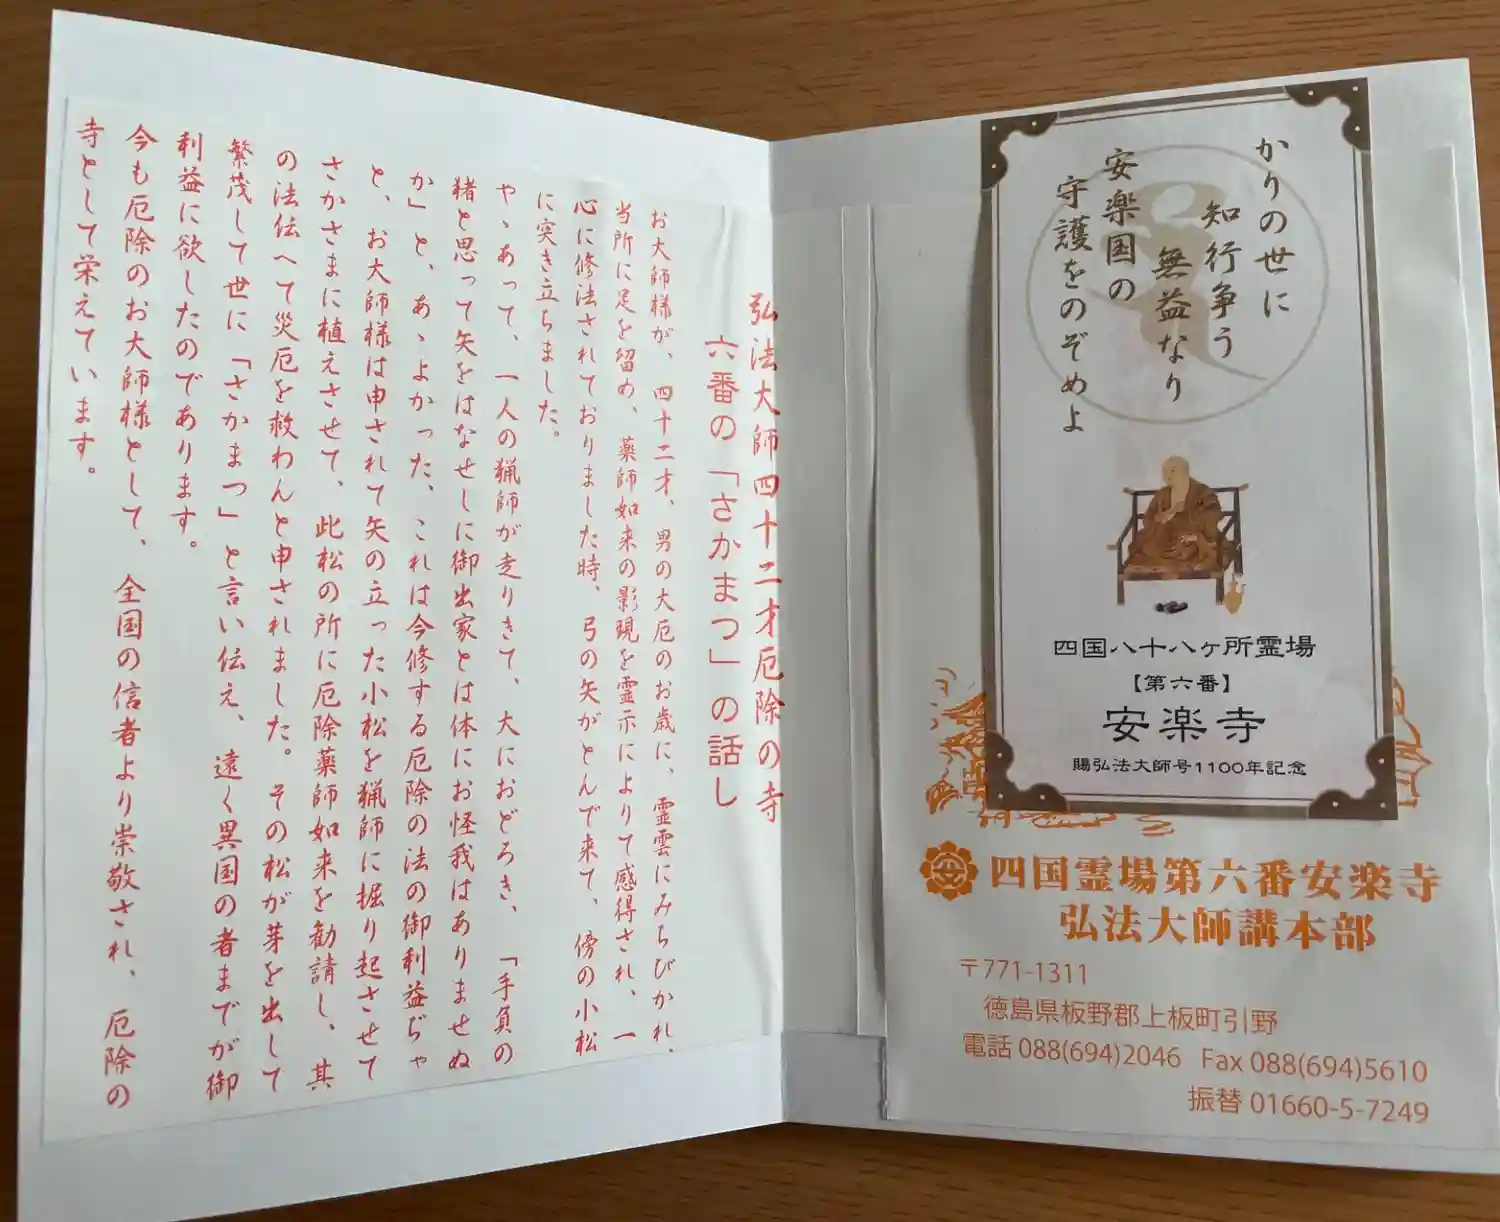 弘法大師四十二才厄除の寺
六番の「さかまつ」の話し
お大師様が、四十二才、男の大厄のお歳に、霊雲にみちびかれ、
当所に足を留め、薬師如来の影現を霊示によりて感得され、一
心に修法されておりました時、弓の矢がとんで来て、傍の小松
に突き立ちました。
やゝあって、一人の猟師が走りきて、大におどろき、「手負の
猪と思って矢をはなせしに御出家とは体にお怪我はありませぬ
か」と、あゝよかった、これは今修する厄除の法の御利益ぢゃ
と、お大師様は申されて矢の立った小松を猟師に掘り起させて
さかさまに植えさせて、此松の所に厄除薬師如来を勧請し、其
の法伝へて災厄を救わんと申されました。その松が芽を出して
繁茂して世に「さかまつ」と言い伝え、遠く異国の者までが御
利益に欲したのであります。
今も厄除のお大師様として、全国の信者より崇敬され、厄除の
寺として栄えています。
かりの世に
知行争う
無益なり
安楽国の
守護をのぞめよ
四国八十八ヶ所霊場
【第六番】
安楽寺
賜弘法大師号1100年記念
四国霊場第六番安楽寺
弘法大師講本部
〒771-1311
徳島県板野郡上板町引野
電話 088(694)2046 Fax 088(694)5610
振替 01660-5-7249